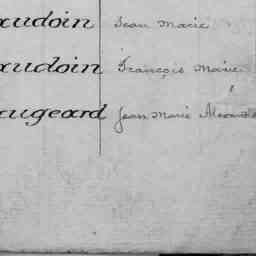 audoin Jean Marie
audoin François Marie
augeard Jean Marie Alexandre